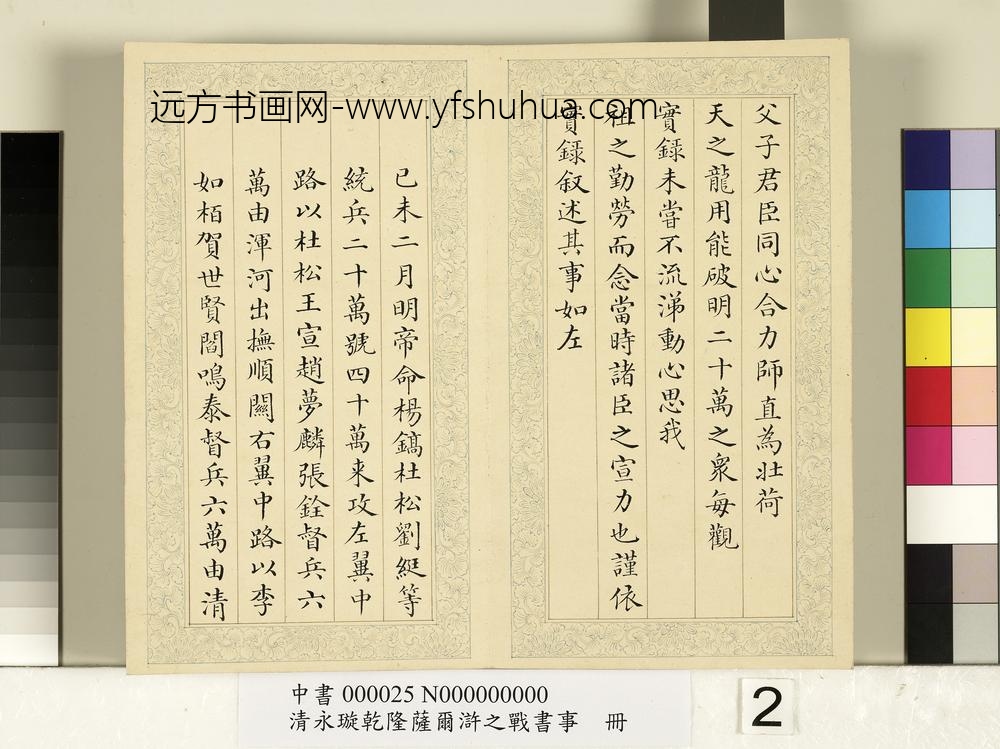 远方书画网-www.yfshuhua.com
父子君臣同心合力師直為壯荷
天之龍用能破明二十萬之衆每觀
實録未嘗不流涕動心思我
祖之勤勞而念當時諸臣之宣力也謹依
實録叙述其事如左
己未二月明帝命楊鎬杜松劉綎等
統兵二十萬號四十萬来攻左翼中
路以杜松王宣趙夢麟張銓督兵六
萬由渾河出撫順關右翼中路以李
如栢賀世賢閻鳴泰督兵六萬由清
中書 000025 N000000000
清永璇乾隆薩爾滸之戰書事 冊
2